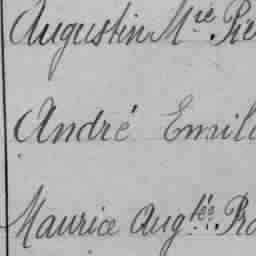 Augustin M.ie Pie
André Emile
Maurice Aug.tée Ro